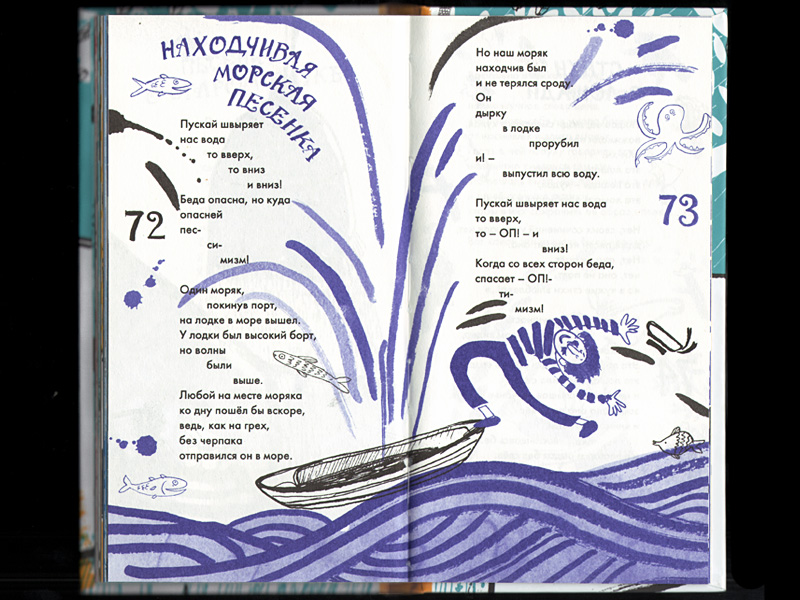 НАХОДЧИВАЯ
МОРСКАЯ
ПЕСЕНКА
Пускай швыряет
нас вода
то вверх,
то вниз
и вниз!
Беда опасна, но куда
опасней
пес-
си-
мизм!
Один моряк,
покинув порт,
на лодке в море вышел.
У лодки был высокий борт,
но волны
были
выше.
Любой на месте моряка
ко дну пошёл бы вскоре,
ведь, как на грех,
без черпака
отправился он в море.
72
Но наш моряк
находчив был
и не терялся сроду.
Он
дырку
в лодке
прорубил
и! –
выпустил всю воду.
Пускай швыряет нас вода
то вверх,
то – ОП! – и
вниз!
Когда со всех сторон беда,
спасает – ОП!-
ти-
мизм!
73